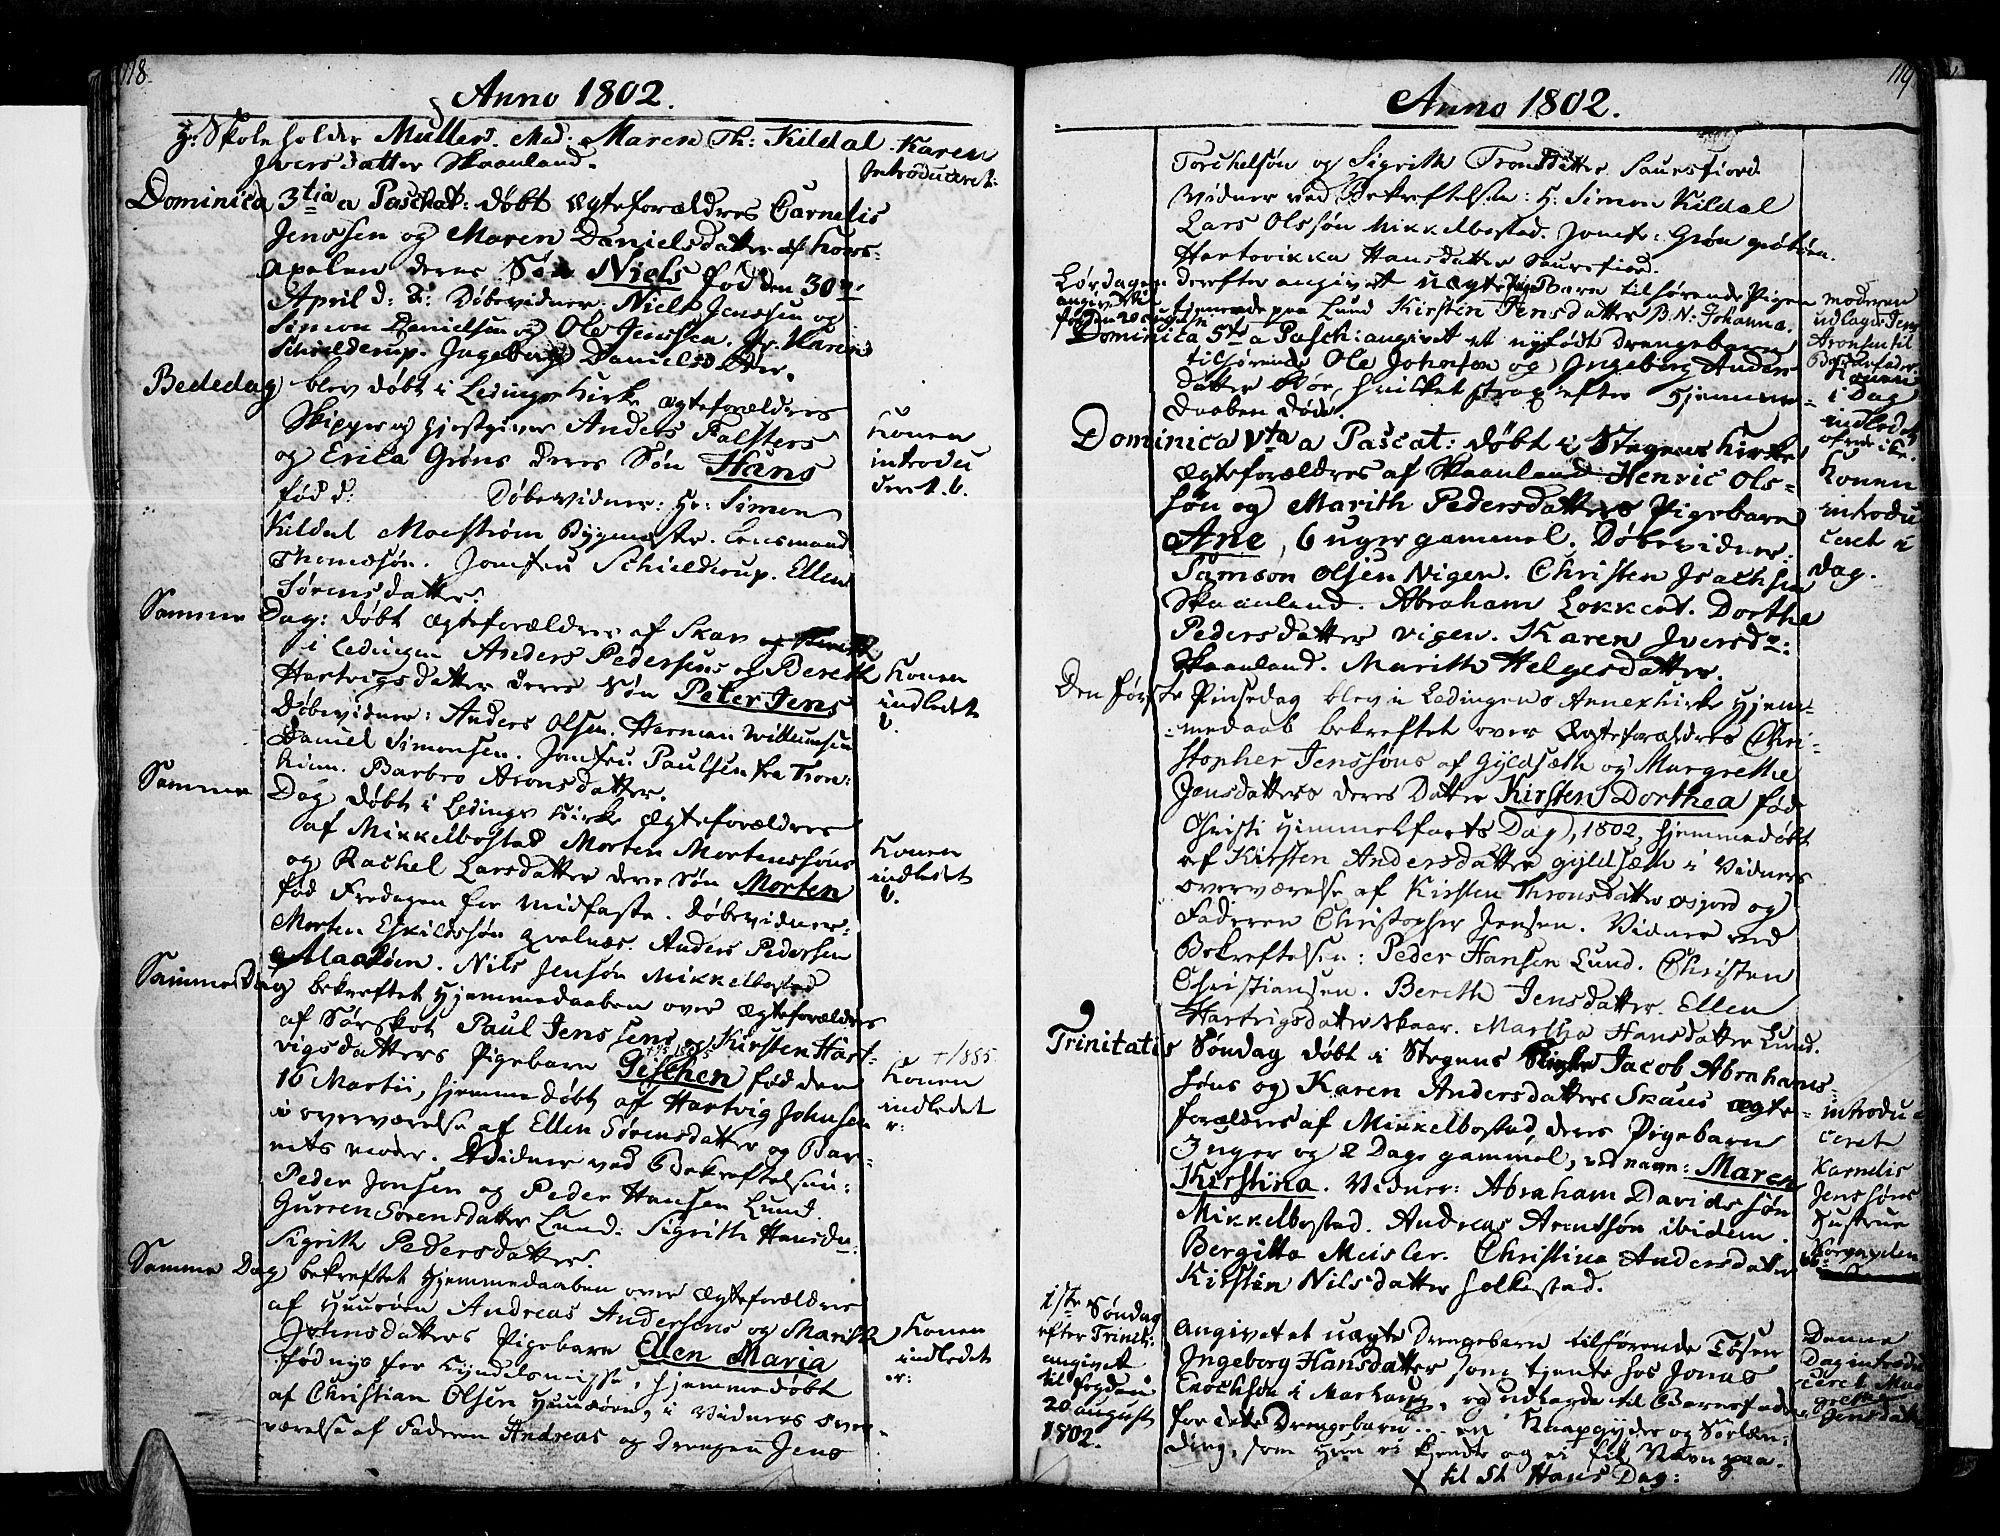 118.
Anno 1802.
H: Skoleholder Müller. Mad. Maren Th: Kildal. Karen
Iversdatter Skaanland.
Introduceret:
Dominica 3tia a Paschat: døbt ægteforældres Cornelis
Jenssen og Maren Danielsdatter af Kors-
deres Søn Niels fød den 30
April d: A: Døbevidner. Niels Jenssen og
Simon Danielsen og Ole Jenssen. Jfr. Karen
Schielderup. Ingeborg Danielsdtter.
Bededag blev døbt i Lødings Kirke ægteforældres
Skipper og Giestgiver Anders Falsters
og Erica Grøns deres Søn Hans
fød d: Døbevidner: Hr: Simon
Kildal Moestrøm Bygmester. Lensmand
Thomæsøn. Jomfru Schielderup. Ellen
Sørensdatter.
Konen
introdu
ceret. b.
Samme Dag: døbt ægteforældres af Skar
i Lødingen Anders Pedersens og Bereth
Hartvigsdatter deres Søn Peter Jens
Døbevidner: Anders Olsen. Herman Willumsen
Daniel Simonsen. Jomfru Paulsen fra Tron:
hiem. Barbro Aronsdatter.
Konen
indledet
Samme Dag døbt i Lødings Kirke ægteforældres
af Mikkelbostad Morten Mortenssøns
og Rachel Larsdatter deres Søn Morten
fød Fredagen før Midfaste. Døbevidner:
Morten Eskildssøn Qvalnæs. Anders Pedersen
Nils Jensøn Mikkelbostad
Konen
indledet
Samme Dag bekreftet Hjemmedaaben over ægteforældres
af Sørskot Paul Jenssens og Kirsten Hart-
vigsdatters Pigebarn Gischen fød den
16 Martii, hjemmedøbt af Hartvig Johnsen
i overværelse af Ellen Sørensdatter og Bar-
nets moder. Vidner ved Bekreftelsen:
Peder Jonsen og Peder Hansen Lund.
Gurren Sørensdatter Lund. Sigrith Hansdr:
Sigrith Pedersdatter.
† 1885.
Konen
indledet
Samme Dag bekreftet Hjemmedaaben over ægteforældres
af Andreas Andersens og Marith
Johnsdatters Pigebarn Ellen Maria
fød nys før Kyndelsmisse, hjemmedøbt
af Christian Olsen i Vidners over-
værelse af Faderen Andreas og Drengen Jens
Konen
indledet
119
Anno 1802.
Torchelsøn og Sigrith Tronsdatter Saursfiord
Vidner ved Bekreftelsen: H: Simon Kildal
Lars Olssøn Mikkelbostad. Jomfr: Grøn
Hartvikka Hansdatter Saursfiord.
Lørdagen derefter angivet uægte Pigebarn tilhørende Pigen
tjenende paa Lund Kirsten Jensdatter B. N: Johanna.
moderen
udlagt Jens
Aronsen til
Barnefader
Dominica 5ta a Pasch: angivet et nyfødt Drengebarn
tilhørende Ole Johnsen og Ingeborg Anders
datter hvilket strax efter Hjemme-
daaben døde.
Konen
i Dag
indledet
Dominica Vta a Pascat: døbt i Stegens Kirke
ægteforældres af Skaanland Henric Ols-
søn og Marith Pedersdatters Pigebarn
Ane, 6 uger gammel. Døbevidner:
Samson Olsen Vigen. Christen Isachsen
Skaanland. Abraham Lokkert. Dorthe
Pedersdatter Vigen. Karen Iversdr:
Skaanland. Marith Helgesdatter.
Konen
introdu
ceret i
dag.
Den første Pinsedag blev i Lødingens Annexkirke Hjem-
medaab bekreftet over Ægteforældres Chri-
stopher Jenssøns af Gyldsæth og Margrethe
Jensdatters deres Datter Kirsten Dorthea fød
Christi Himmelfarts Dag, 1802, hjemmedøbt
af Kirsten Andersdatter Gyldsæth i Vidners
overværelse af Kirsten Thronsdatter og
Faderen Christopher Jensen. Vidner ved
Bekreftelsen: Peder Hansen Lund. Christen
Christiansen. Bereth Jensdatter. Ellen
Hartvigsdatter Skaar. Martha Hansdatter Lund.
Trinitatis Søndag døbt i Stegens Kirke Jacob Abrahams-
søns og Karen Andersdatters Skaus ægte-
forældres af Mikkelbostad, deres Pigebarn
3 uger og 2 Dage gammel, ved navn: Maren
Kirstina. Vidner: Abraham Davidssøn
Mikkelbostad. Andreas Arentsøn ibidem.
Bergitta Meisler. Christina Andersdatter
Kirsten Nilsdatter Holkestad.
introdu
ceret
Karnelis
Jenssøns
Hustrue
1ste Søndag
efter Trinit:
angivet
til fogden
20 august
1802.
Angivet et uægte Drengebarn tilhørende Tøsen
Ingeborg Hansdatter som tjente hos Jonas
Enochsøn i Marhaug, og udlagde til Barnefader
for dette Drengebarn en Knapgyder og Sørlæn-
ding, som hun ei kjendte og ei fik Navn paa.
X til St Hans Dag:
Denne
Dag introdu
ceret Mar
grethe
Jensdatter